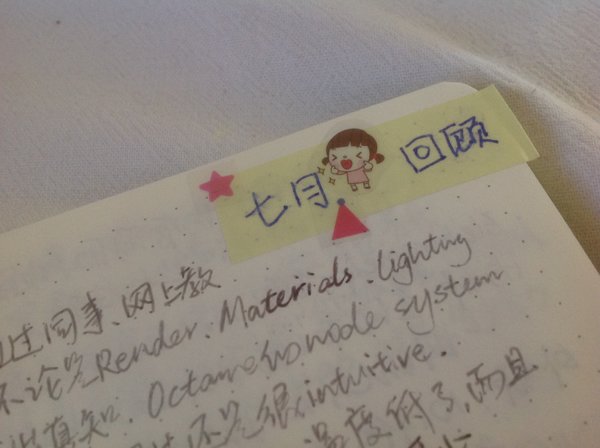 七月. 回顾
过同事、网上教
不论是Render、Materials、lighting
真知. Octane的node system
还是很intuitive.
温度低了,而且